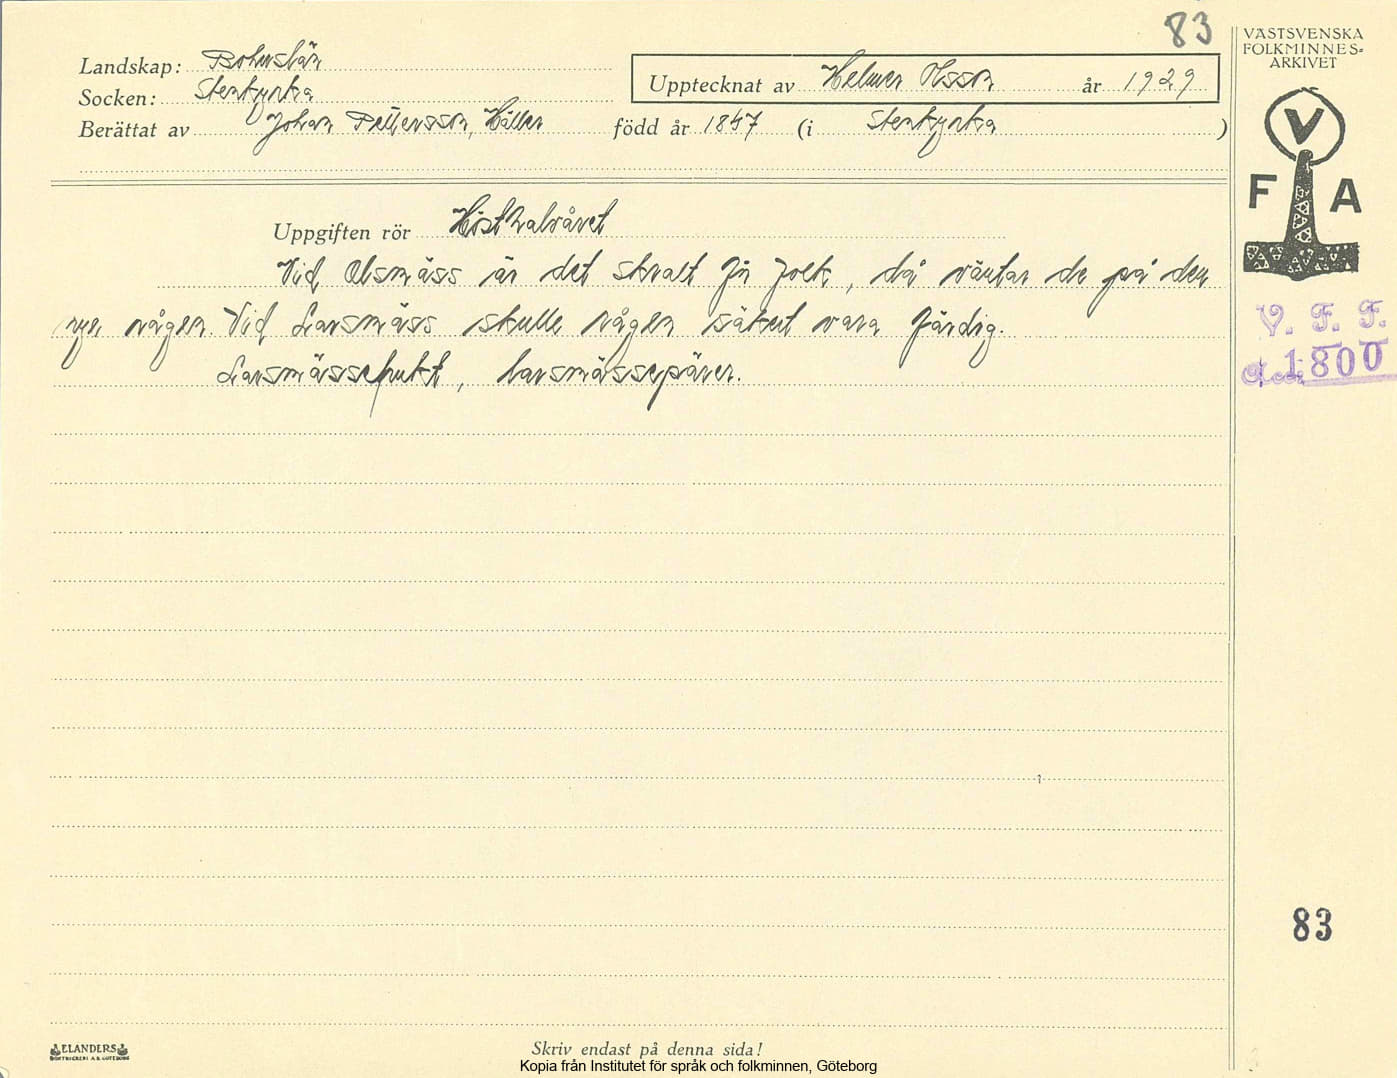 83
VÄSTSVENSKA
FOLKMINNES-
ARKIVET
Landskap: Bohuslän
Socken: Stenkyrka
Upptecknat av Helmer Olsson år 1929
Berättat av Johan Pettersson, Häller född år 1847 (i Stenkyrka )
V
F A
Uppgiften rör Höst halvåret
Vid Olsmäss är det skralt för folk, då väntar de på den
nye rågen. Vid Larsmäss skulle rågen säkert vara färdig.
Larsmässefrukt, larsmässepärer.
V. F. F.
Acc: 1800
83
ELANDERS
BOKTRYCKERI A.B. GÖTEBORG
Skriv endast på denna sida!
Kopia från Institutet för språk och folkminnen, Göteborg